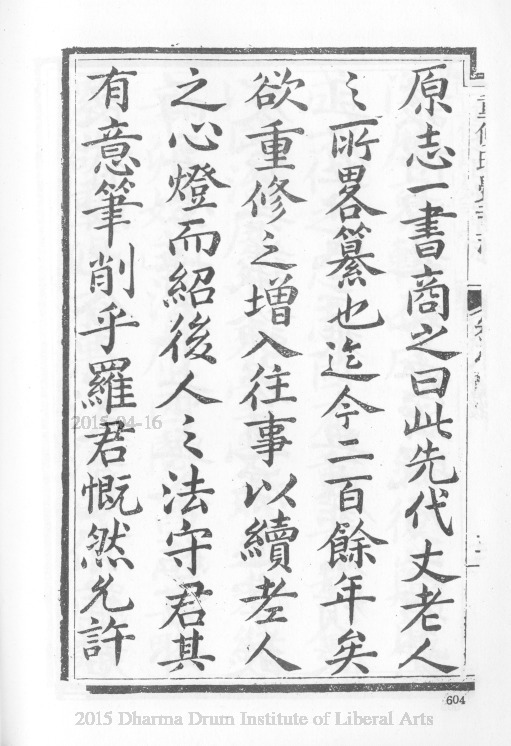 原志一書商之曰此先代丈老人
之所畧纂也迄今二百餘年矣
欲重修之增入往事以續老人
之心燈而紹後人之法守君其
有意筆削乎羅君慨然允許
604
2015-04-16
2015 Dharma Drum Institute of Liberal Arts